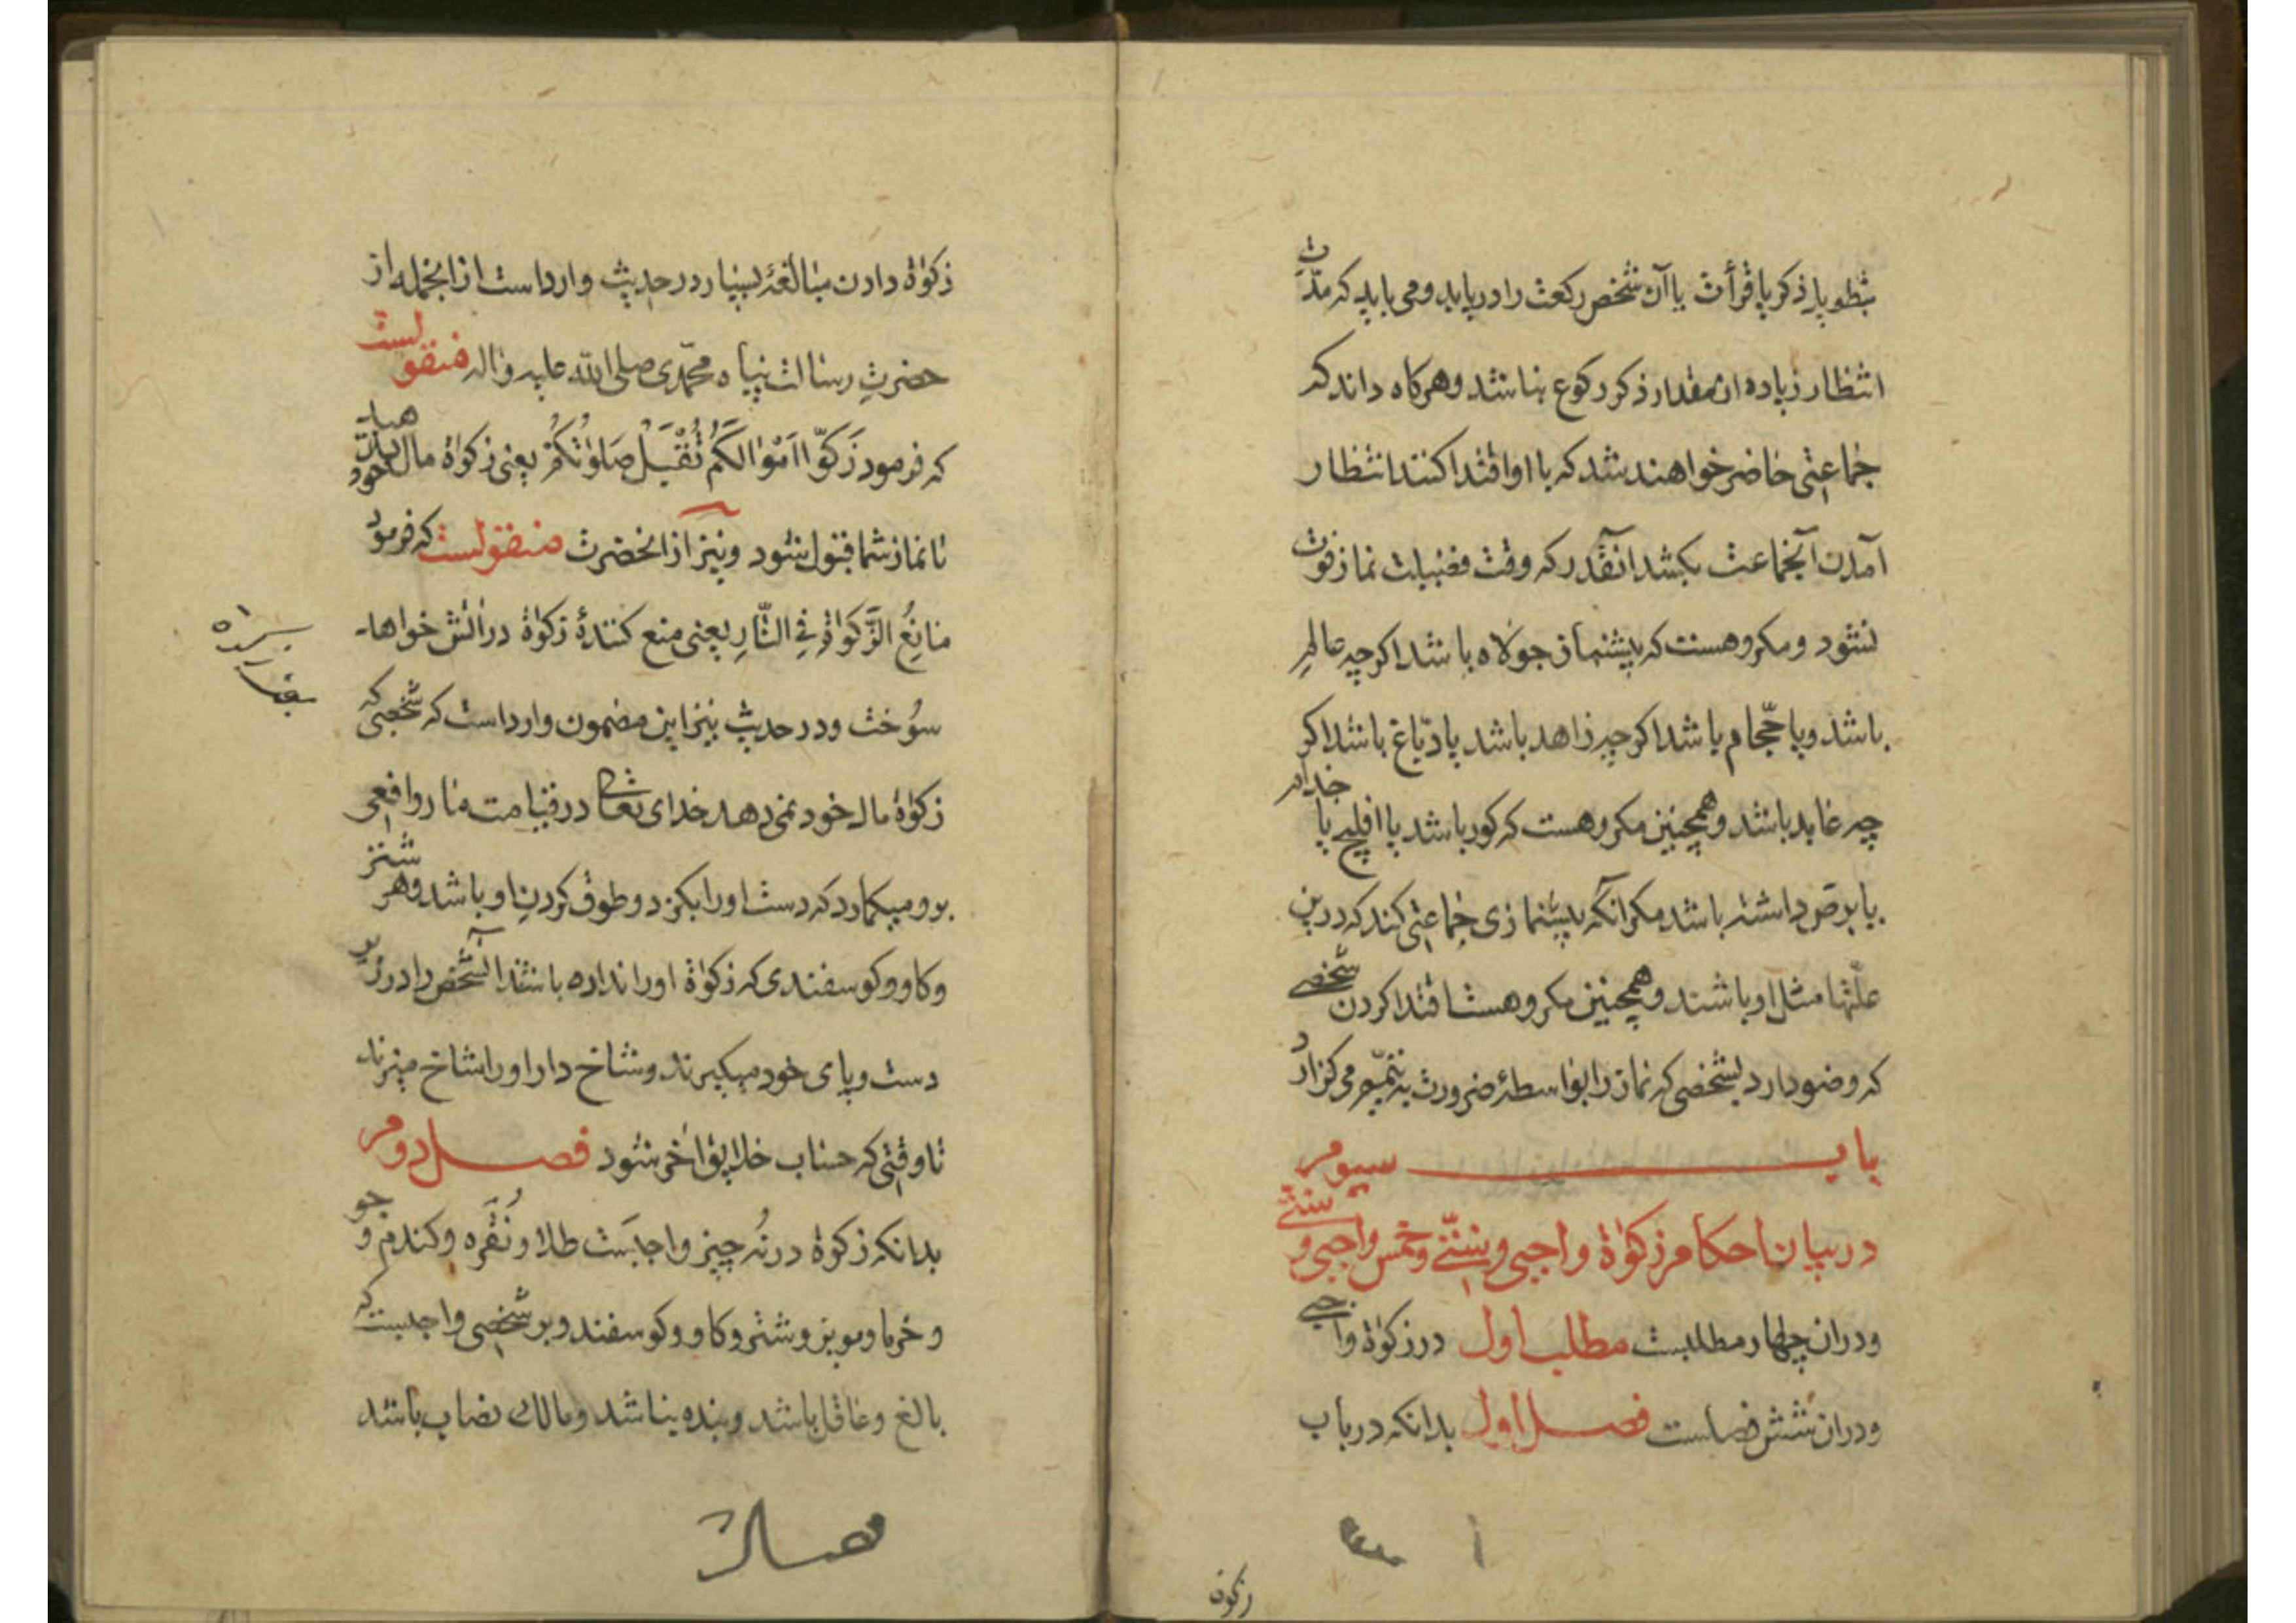 بتطویل ذکر یا قرأت یا آن شخص رکعت را دریابد و می باید که مدّت
انتظار زیاده از مقدار ذکر رکوع نباشد و هرکاه داند که
جماعتی حاضر خواهند شد که با او اقتدا کنند انتظار
آمدن آنجماعت بکشد انقدر که وقت فضیلت نماز فوت
نشود و مکروهست که پیشنماز جولاه باشد اکرچه عالم
باشد و یا حجّام باشد اکرچه زاهد باشد یا دبّاغ باشد اکر
چه عابد باشد و همچنین مکروهست که کور باشد یا افلیج یا جذام
یا برص داشته باشد مکر آنکه پیشنمازی جماعتی کند که درین
علّتها مثل او باشند و همچنین مکروهست اقتدا کردن شخصی
که وضو دارد بشخصی که نماز را بواسطهٔ ضرورت به تیمّم می کزارد
باب سیوم
در بیان احکام زکوٰة واجبی و سنّتی و خمس واجبی و سنّتی
و در ان چهار مطلبست مطلب اول در زکوٰة واجبی
و در ان شش فصلست فصل اول بدانکه در باب
زکوة
زکوٰة دادن مبالغهٔ بسیار در حدیث وارد است از انجمله از
حضرتِ رسالت پناه محمّدی صلی الله علیه واله منقولست
که فرمود زَکّوا اَمْوٰالَکُمْ تُقْبَلْ صَلوٰتُکُمْ یعنی زکوٰة مال خود بدهید
تا نماز شما قبول شود و نیز از انحضرت منقولست که فرمود
مٰانِعُ الزَّکوٰاةِ فِي النّٰارِ یعنی منع کنندهٔ زکوٰة در اتش خواهد
سوُخت و در حدیث نیز این مضمون وارد است که شخصی که
زکوٰة مال خود نمی دهد خدای تعالی در قیامت مار و افعی
برو میکمارد که دست او را بکزد و طوق کردنِ او باشد و هر شتر
و کاو و کوسفندی که زکوٰة او را نداده باشد انشخص را در زیر
دست و پای خود میکیرند و شاخ دار او را شاخ میزند
تا وقتی که حساب خلایق اٰخر شود فصل دوم
بدانکه زکوة در نُه چیز واجبَست طلا و نُقَره و کندم و جو
و خرما و مویز و شتر و کاو و کوسفند و بر شخصی واجبست که
بالغ و عاقل باشد و بنده نباشد و مالک نصاب باشد